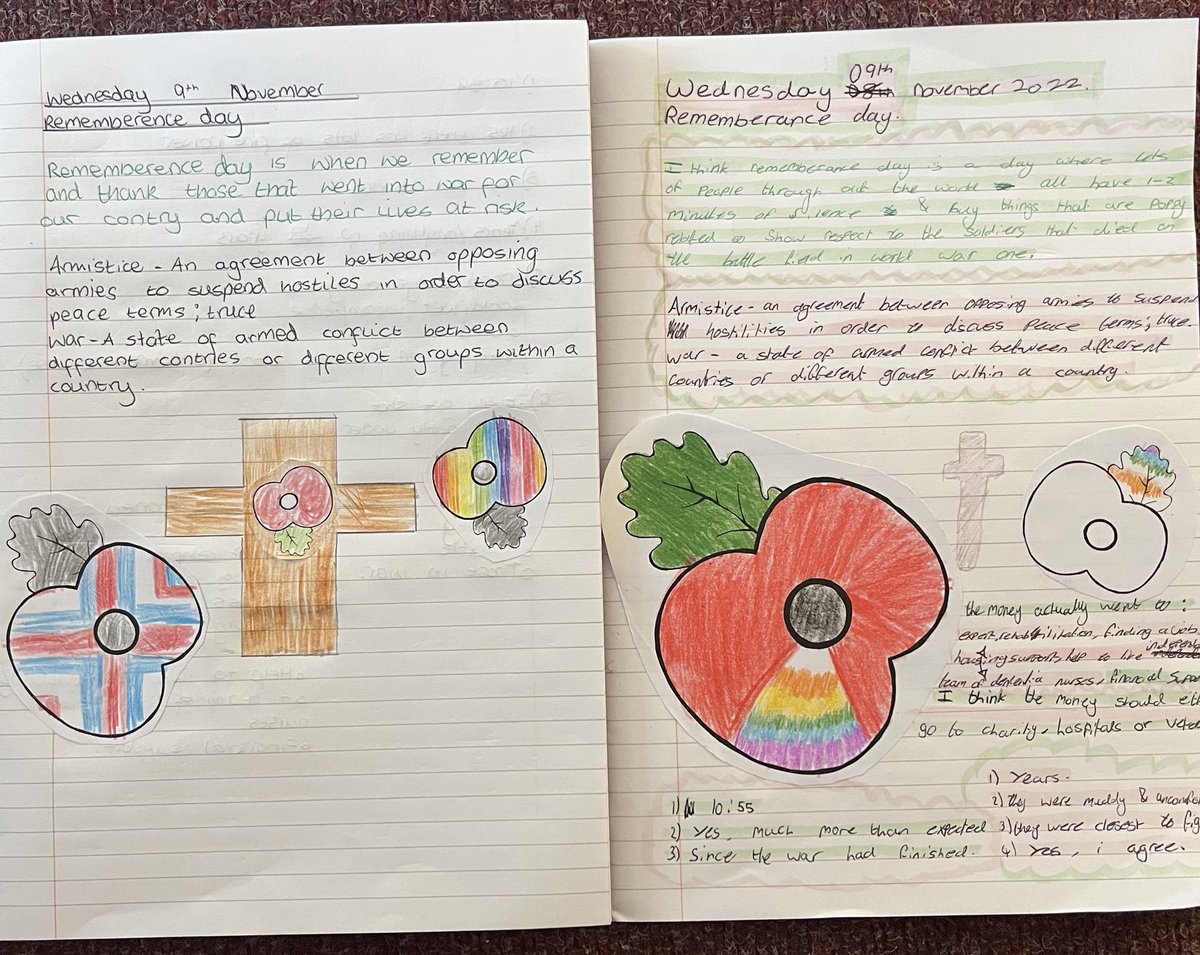 Wednesday 9th November
Rememberence day
Rememberence day is when we remember
and thank those that went into war for
our contry and put their lives at risk.
Armistice - An agreement between opposing
armies to suspend hostiles in order to discuss
peace terms; truce
War - A state of armed conflict between
different contries or different groups within a
country.
09th
Wednesday november 2022.
Rememberance day.
I think rememberance day is a day where lots
of people through out the world all have 1-2
minutes of silence & buy things that are poppy
related to show respect to the soldiers that died on
the battle field in world war one.
Armistice - an agreement between opposing armies to suspend
hostilities in order to discuss peace terms; truce.
war - a state of armed conflict between different
countries or different groups within a country.
the money actually went to:
finding a job,
housing support, help to live
team of nurses, financial
I think the money should
go to charity, hospitals or
1) 10:55
2) Yes, much more than expected
3) Since the war had finished.
1) Years.
2) they were muddy &
3) they were closest to
4) Yes, i agree.